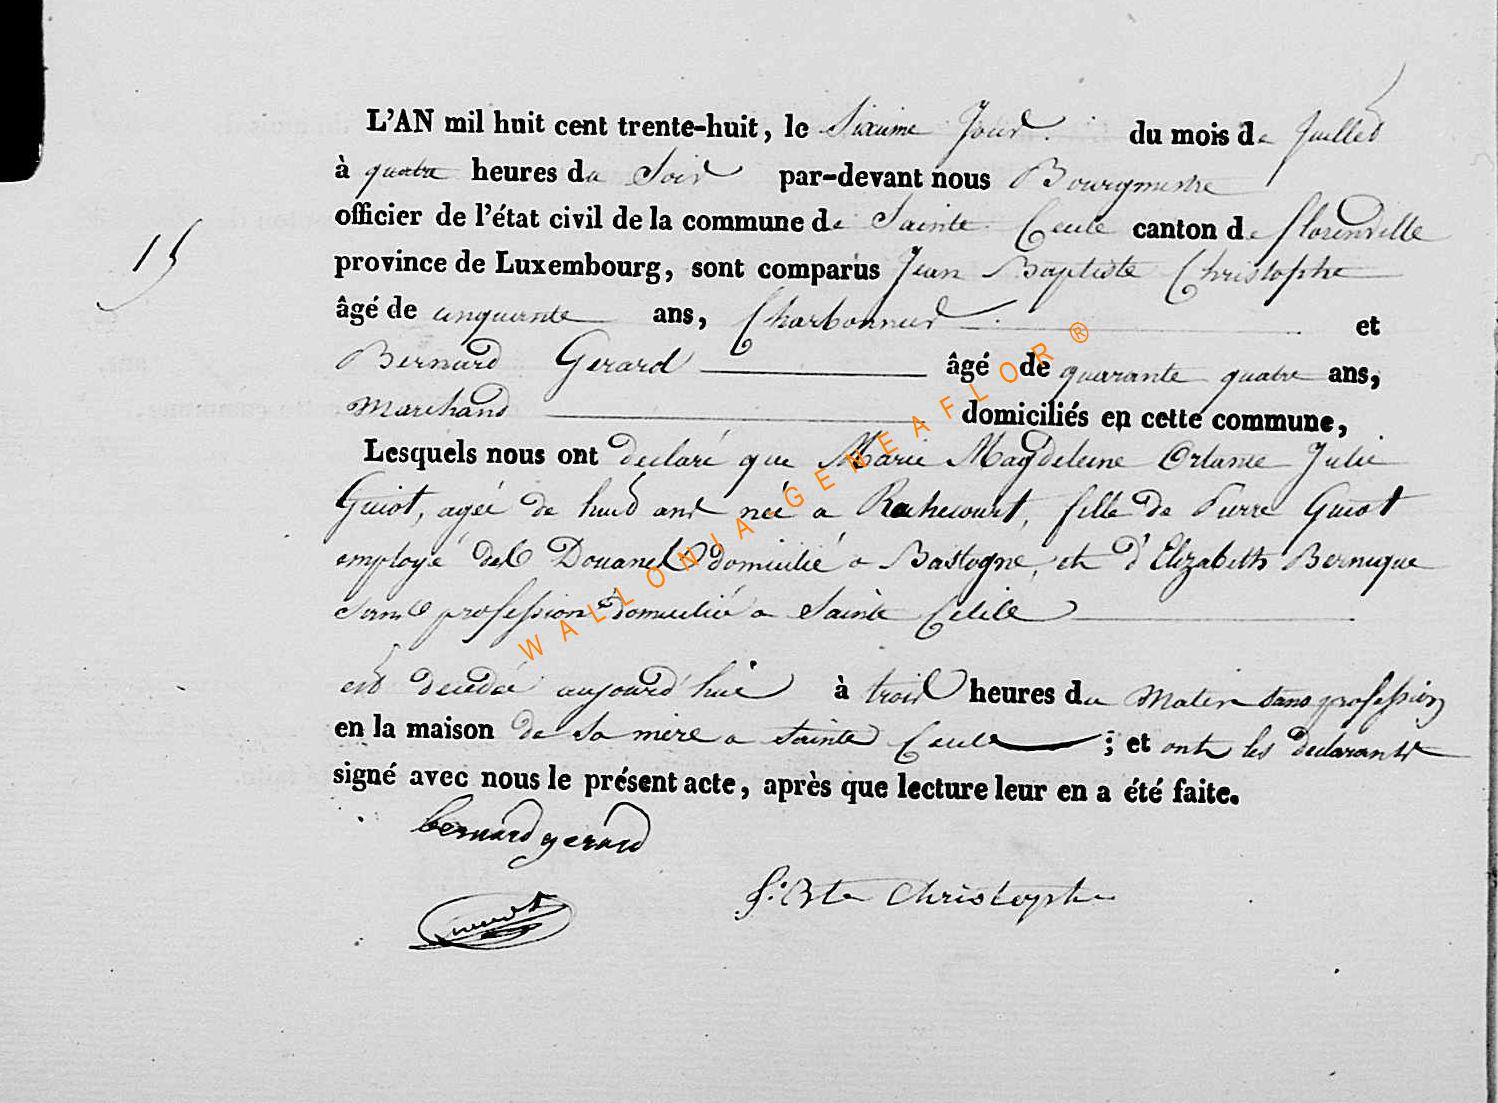 L'AN mil huit cent trente-huit, le Sixieme Jour du mois de Juillet
à quatre heures du Soir par-devant nous Bourgmestre
officier de l'état civil de la commune de Sainte Cecile canton de florenville
15
province de Luxembourg, sont comparus Jean Baptiste Christophe
âgé de cinquante ans, Charbonnier et
Bernard Gerard âgé de quarante quatre ans,
Marchand domiciliés en cette commune,
Lesquels nous ont declaré que Marie Magdeleine Ortanse Julie
Guiot, agée de huit ans née a Rachecourt, fille de Pierre Guiot
employé des Douanes domicilié a Bastogne, et d'Elizabeth Bernique
sans profession domiciliée a Sainte Cecile
est decedée aujourd'hui à trois heures du Matin sans profession
en la maison de sa mere a Sainte Cecile ; et ont les declarants
signé avec nous le présent acte, après que lecture leur en a été faite.
bernard gerard
J. Bte Christophe
WALLONIA-GENEAFLOR ®